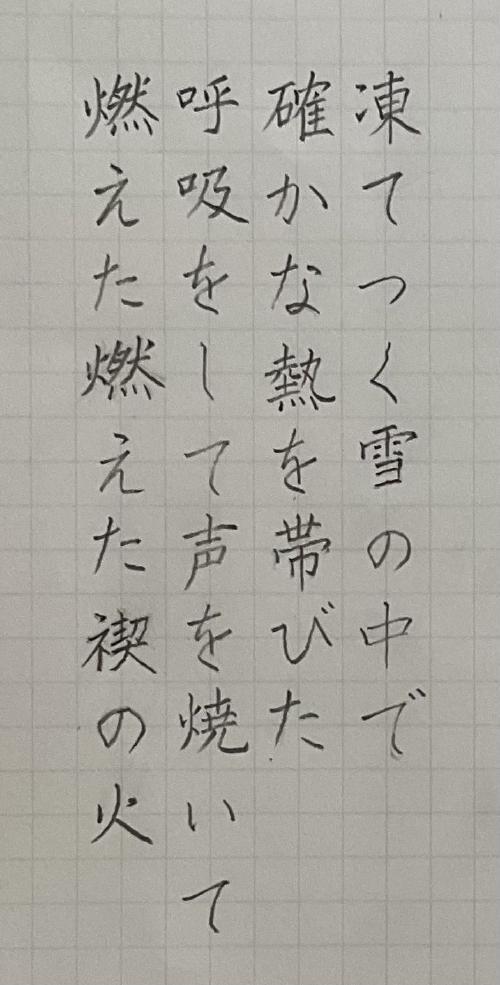 凍てつく雪の中で
確かな熱を帯びた
呼吸をして声を焼いて
燃えた燃えた禊の火